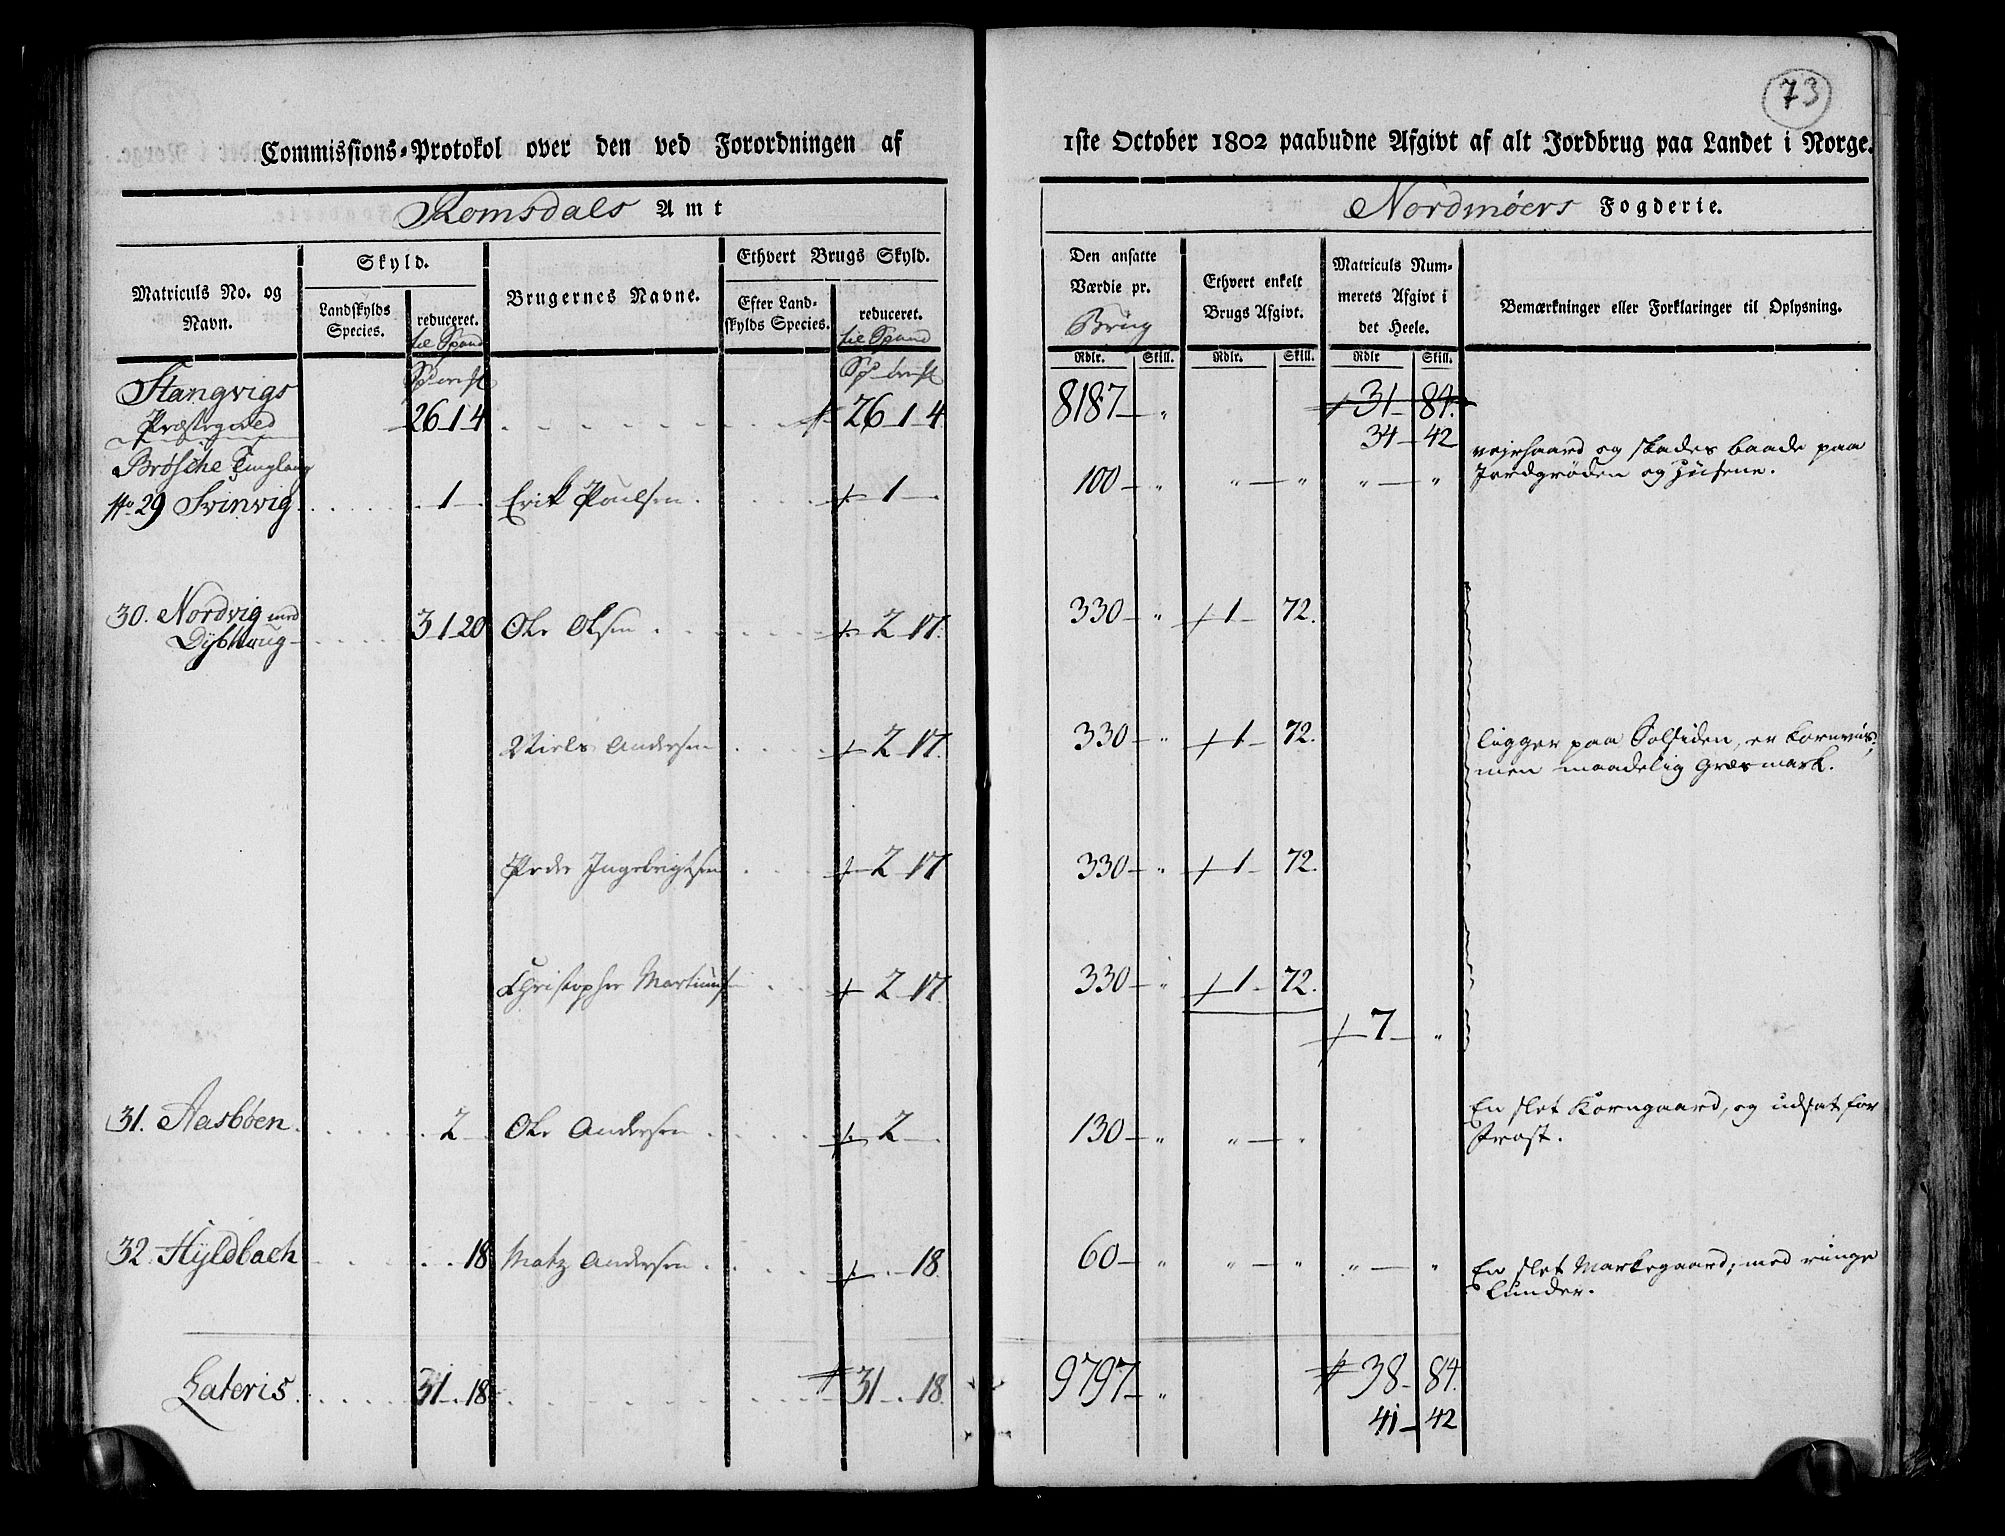 73
Commissions-Protokol over den ved Forordningen af
1ste October 1802 paabudne Afgivt af alt Jordbrug paa Landet i Norge.
Romsdals Amt
Nordmøers Fogderie.
Matriculs No. og Navn.
Skyld.
Landskylds Species.
reduceret.
til Spand
Brugernes Navne.
Ethvert Brugs Skyld.
Efter Landskylds Species.
reduceret.
til Spand
Den ansatte Værdie pr.
Brug
Ethvert enkelt Brugs Afgivt.
Matriculs Nummerets Afgivt i det Heele.
Bemærkninger eller Forklaringer til Oplysning.
Rdlr. Skill. Rdlr. Skill. Rdlr Skill.
Stangvigs 8187 — " 31 — 84.
Præstegield 26 1 4 26 1 4 34 — 42
Brøsche Tinglaug
No. 29 Svinvig 1 — Erik Poulsen 1 — 100 — " " — " " — "
vejrhaard og skades baade paa
Jordgrøden og Husene.
30. Nordvig med
Dybhaug 3 1 20 Ole Olsen 2 17. 330 — " 1 — 72.
Niels Andersen 2 17. 330 — " 1 — 72.
ligger paa Solsiden, er kornviis,
men maadelig Græsmark.
Peder Ingebrigtsen 2 17 330 — " 1 — 72.
Christopher 2 17. 330 — " 1 — 72.
7 — "
31. Aasbøen 2 — Ole Andersen 2 — 130 — " " — "
En slet Korngaard, og udsat for
Frost.
32. Hyldbach 18 Matz Andersen 18. 60 — " " — " " — "
En slet Markegaard, med ringe
Lunder.
Lateris 31 18 31 18. 9797 — " 38 — 84.
41 — 42